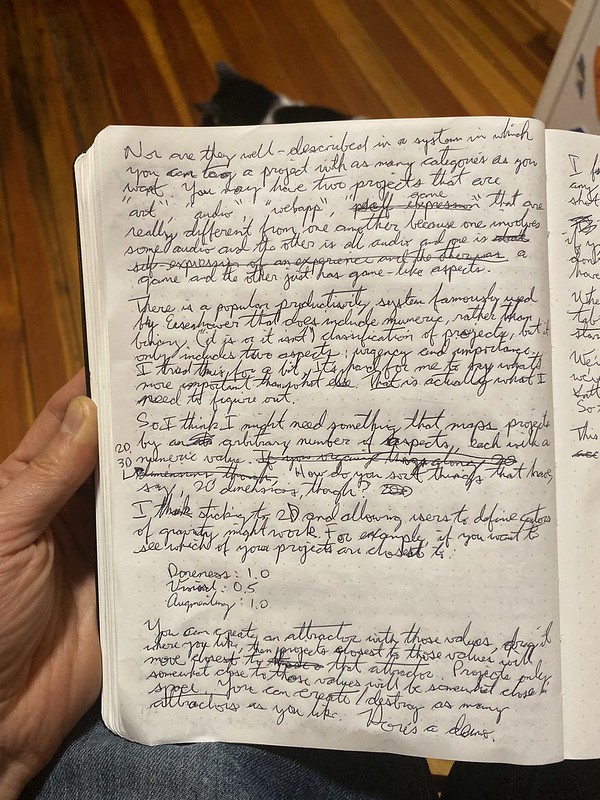 Nor are they well-described in a system in which
you can tag a project with as many categories as you
want. You may have two projects that are
"art", "audio", "webapp", "game" that are
really different from one another because one involves
some audio and the other is all audio and one is
self-expression of an experience and the other was a
game and the other just has game-like aspects.
There is a popular productivity system famously used
by Eisenhower that does include numeric, rather than
binary, ("it is or it isn't") classification of projects, but it
only includes two aspects: urgency and importance.
I tried this for a bit. It's hard for me to say what's
more important than what else. That is actually what I
need to figure out.
So I think I might need something that maps projects
by an arbitrary number of aspects, each with a
2D, 3D numeric value. If you organize
dimensions though, How do you sort things that have,
say, 20 dimensions, though?
I think sticking to 2D and allowing users to define centers
of gravity might work. For example, if you want to
see which of your projects are closest to:
Doneness: 1.0
Visual: 0.5
Augmenting: 1.0
You can create an attractor with those values, drag it
where you like, then projects closest to those values will
move closest to that attractor. Projects only
somewhat close to those values will be somewhat close in
space. You can create/destroy as many
attractors as you like. Here's a demo.
I f
any
shot
if y
don't
have
Whe
tab
star
We'r
So
This